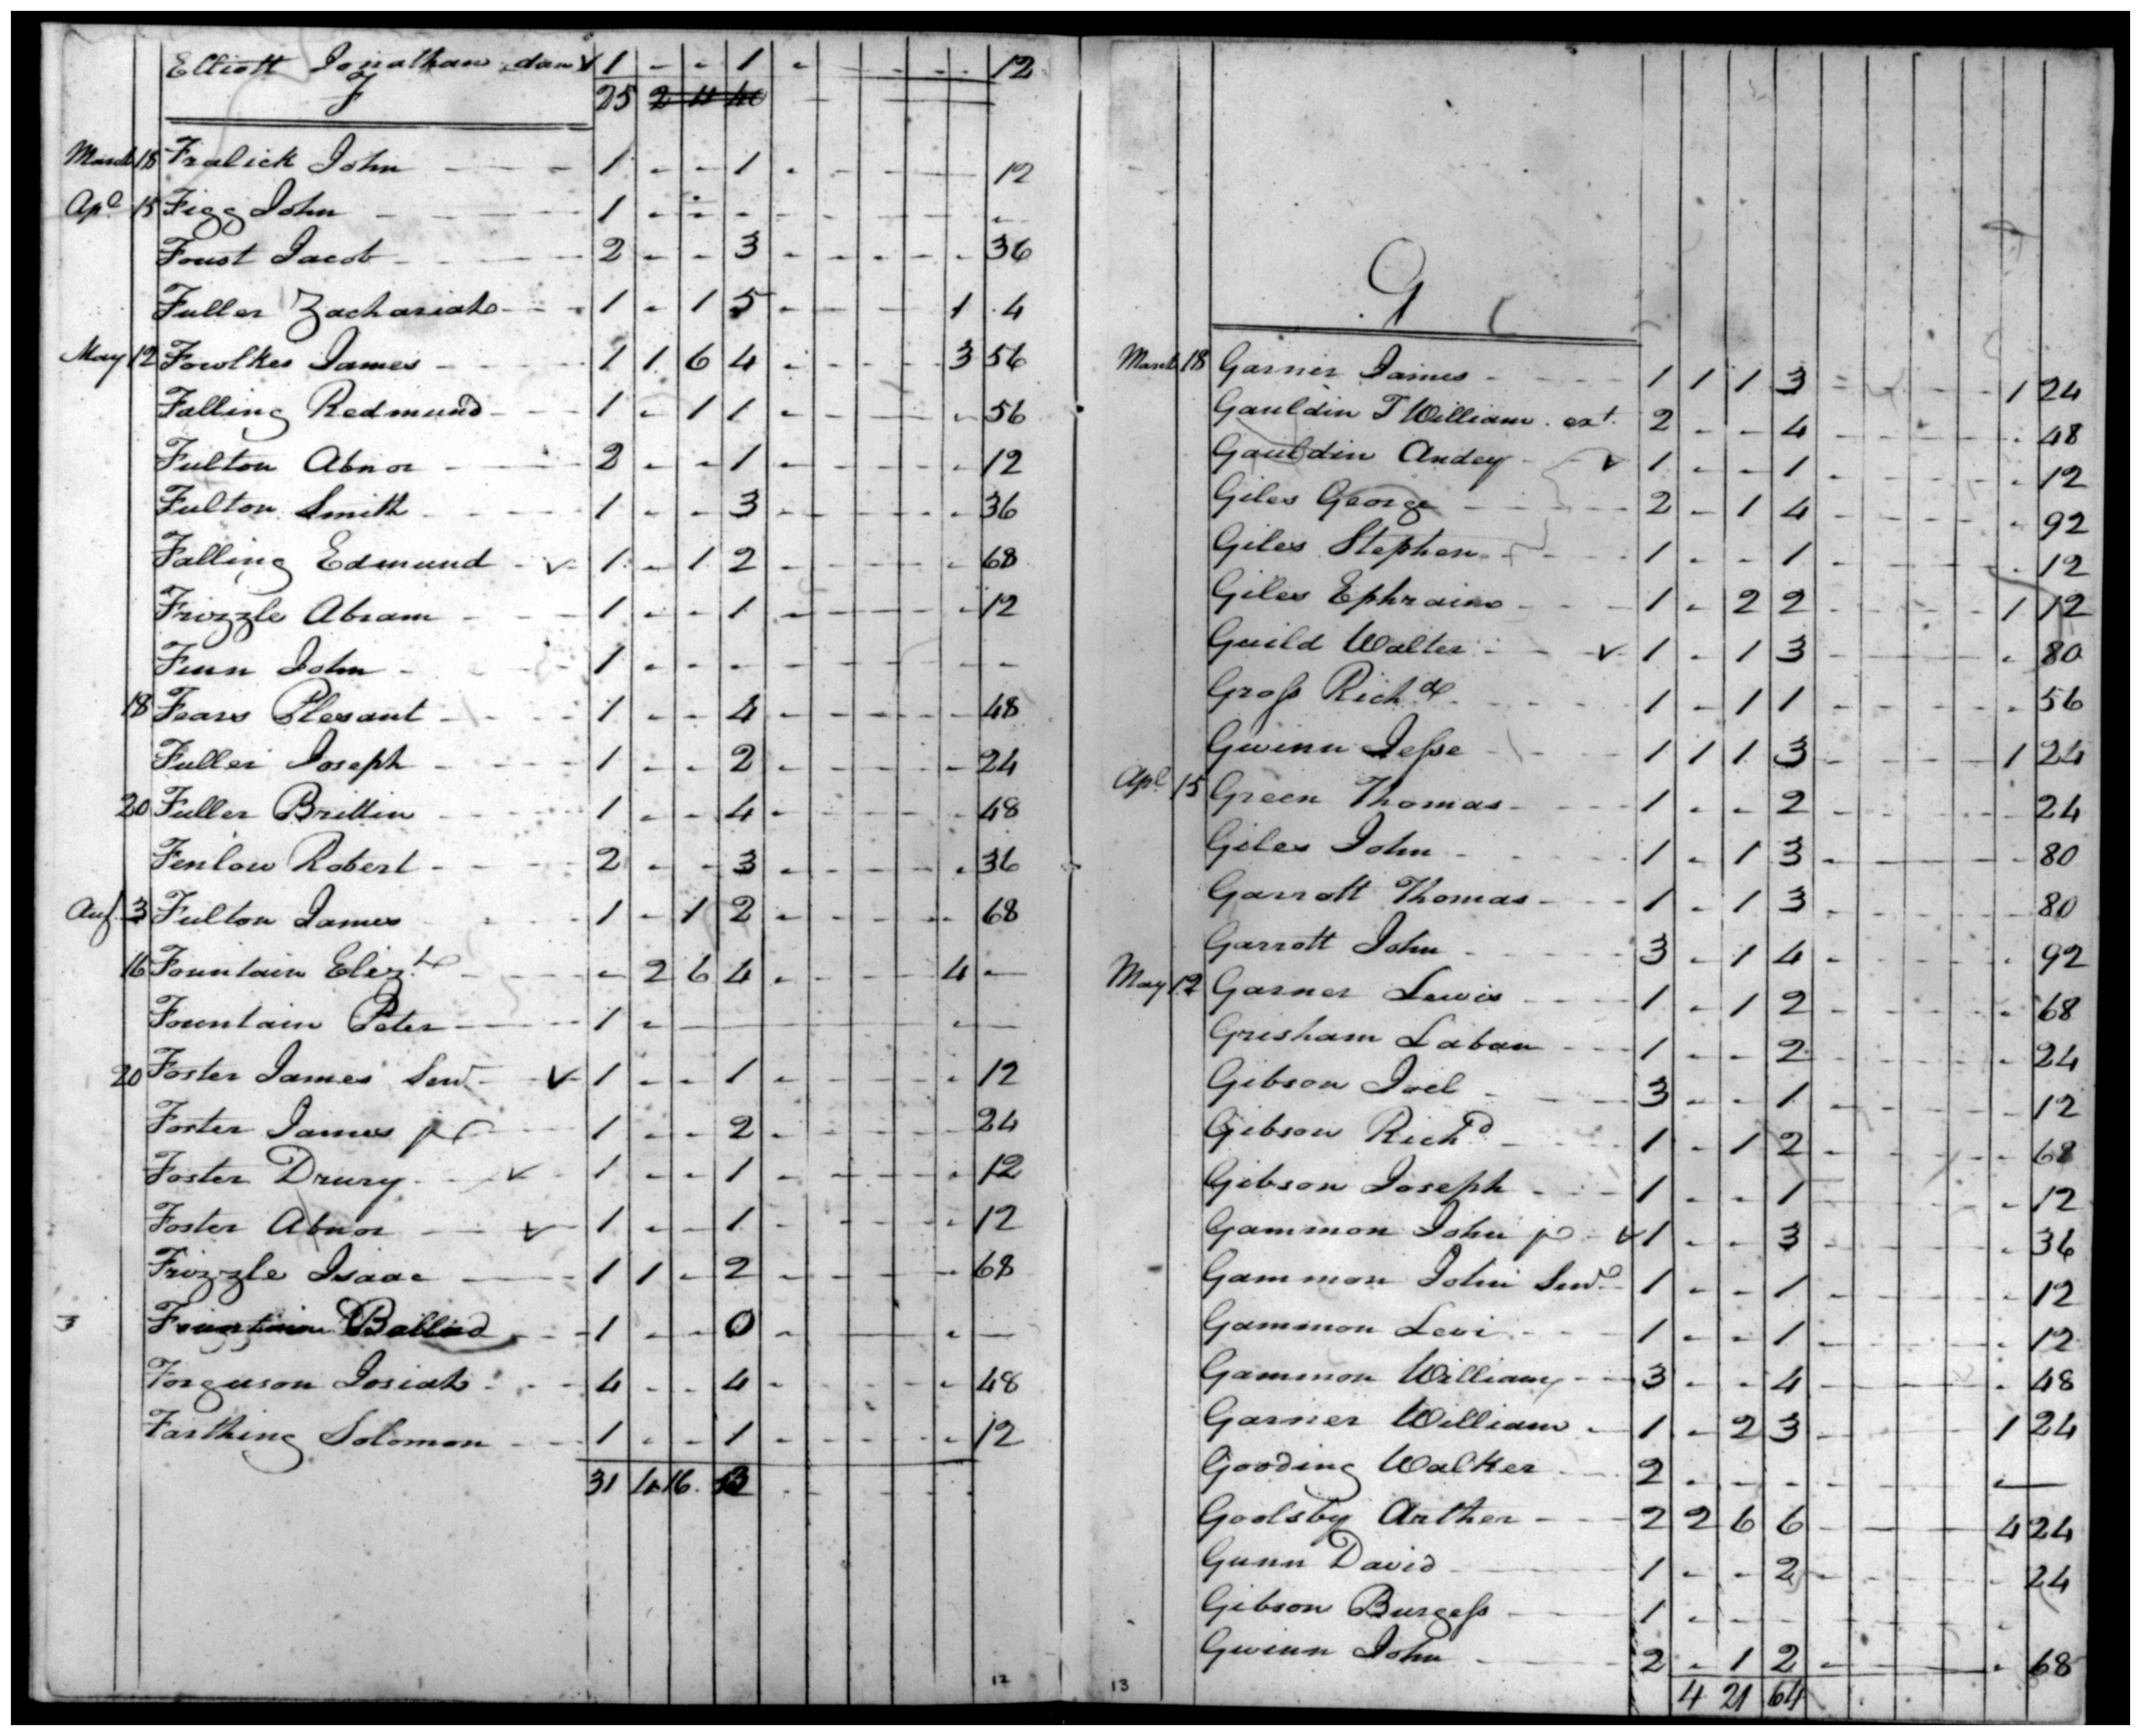 Elliott Jonathan dan v 1 - - 1 - - - - - 12
F 25 2 11 40
March 18 Fralick John 1 - - 1 - - - - 12
Apl 15 Figg John 1 - - - - - - - -
Foust Jacob 2 - - 3 - - - - - 36
Fuller Zachariah 1 - 1 5 - - - 1 4
May 12 Fowlkes James 1 1 6 4 - - - - 3 56
Falling Redmund 1 - 1 1 - - - - - 56
Fulton Abnor 2 - - 1 - - - - - 12
Fulton Smith 1 - - 3 - - - - - 36
Falling Edmund v 1 - 1 2 - - - - - 68
Frizzle Abram 1 - - 1 - - - - - 12
Finn John 1 - - - - - - - - -
18 Fears Plesant 1 - - 4 - - - - - 48
Fuller Joseph 1 - - 2 - - - - - 24
20 Fuller Brittin 1 - - 4 - - - - - 48
Fenlow Robert 2 - - 3 - - - - - 36
Aug 3 Fulton James 1 - 1 2 - - - - - 68
16 Fountain Elizth - 2 6 4 - - - - 4 -
Fountain Peter 1 - - - - - - - - -
20 Foster James Senr v 1 - - 1 - - - - - 12
Foster James jr 1 - - 2 - - - - 24
Foster Drury v 1 - - 1 - - - - - 12
Foster Abnor v 1 - - 1 - - - - - 12
Frizzle Isaac 1 1 - 2 - - - - - 68
3 Fountain Ballard 1 - - 0 - - - - - -
Forguson Josiah 4 - - 4 - - - - - 48
Farthing Solomon 1 - - 1 - - - - - 12
31 4 16
12
G
March 18 Garner James 1 1 1 3 - - - - 1 24
Gauldin T William ext. 2 - - 4 - - - - - 48
Gauldin Andey v 1 - - 1 - - - - - 12
Giles George 2 - 1 4 - - - - - 92
Giles Stephen 1 - - 1 - - - - - 12
Giles Ephraim 1 - 2 2 - - - - 1 12
Guild Walter v 1 - 1 3 - - - - - 80
Groſs Richd 1 - 1 1 - - - - - 56
Gwinn Jeſse 1 1 1 3 - - - - 1 24
Apl 15 Green Thomas 1 - - 2 - - - - - 24
Giles John 1 - 1 3 - - - - - 80
Garrott Thomas 1 - 1 3 - - - - - 80
Garrott John 3 - 1 4 - - - - - 92
May 12 Garner Lewis 1 - 1 2 - - - - - 68
Grisham Laban 1 - - 2 - - - - - 24
Gibson Joel 3 - - 1 - - - - - 12
Gibson Richd 1 - 1 2 - - - - - 68
Gibson Joseph 1 - - 1 - - - - - 12
Gammon John jr v 1 - - 3 - - - - - 36
Gammon John Senr 1 - - 1 - - - - - 12
Gammon Levi 1 - - 1 - - - - - 12
Gammon William 3 - - 4 - - - - - 48
Garner William 1 - 2 3 - - - - 1 24
Gooding Walker 2 - - - - - - - - -
Goolsby Arther 2 2 6 6 - - - - 4 24
Gunn David 1 - - 2 - - - - - 24
Gibson Burgeſs 1 - - - - - - - -
Gwinn John 2 - 1 2 - - - - - 68
4 21 64
13